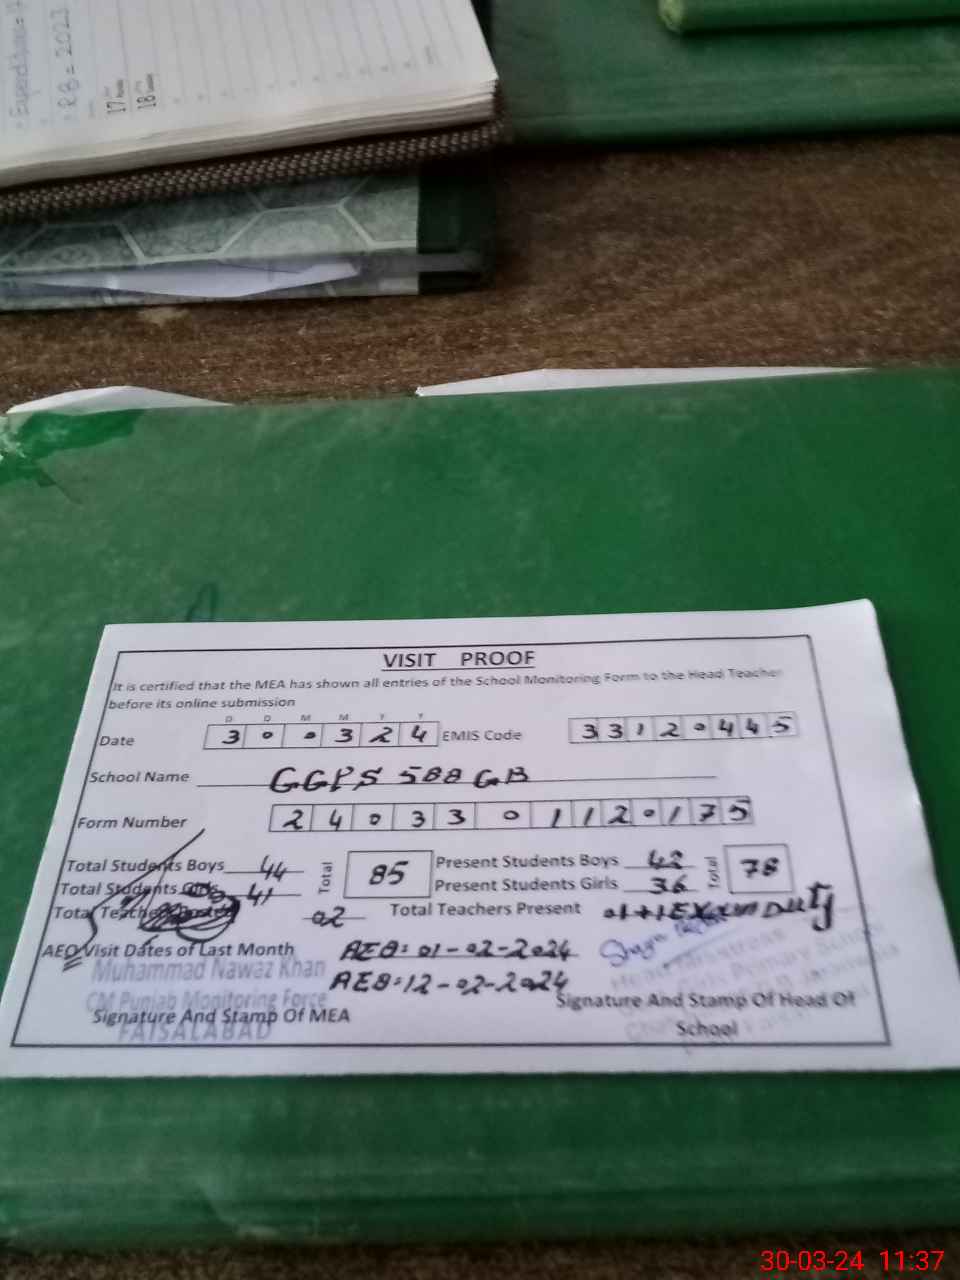 Expenditure =
RB = 2023
17
18
VISIT PROOF
It is certified that the MEA has shown all entries of the School Monitoring Form to the Head Teacher
before its online submission
D D M M Y Y
Date 300324 EMIS Code 33120445
School Name GGPS 588 GB
Form Number 2403301120175
Total Students Boys 44 Total 85 Present Students Boys 42 Total 78
Total Students Girls 41 Present Students Girls 36
Total Teachers Posted 02 Total Teachers Present 01+1 Exam Duty
AEO Visit Dates of Last Month AEO: 01-02-2024
AEO: 12-02-2024
Muhammad Nawaz Khan
CM Punjab Monitoring Force
FAISALABAD
Signature And Stamp Of MEA
Signature And Stamp Of Head Of
School
30-03-24 11:37